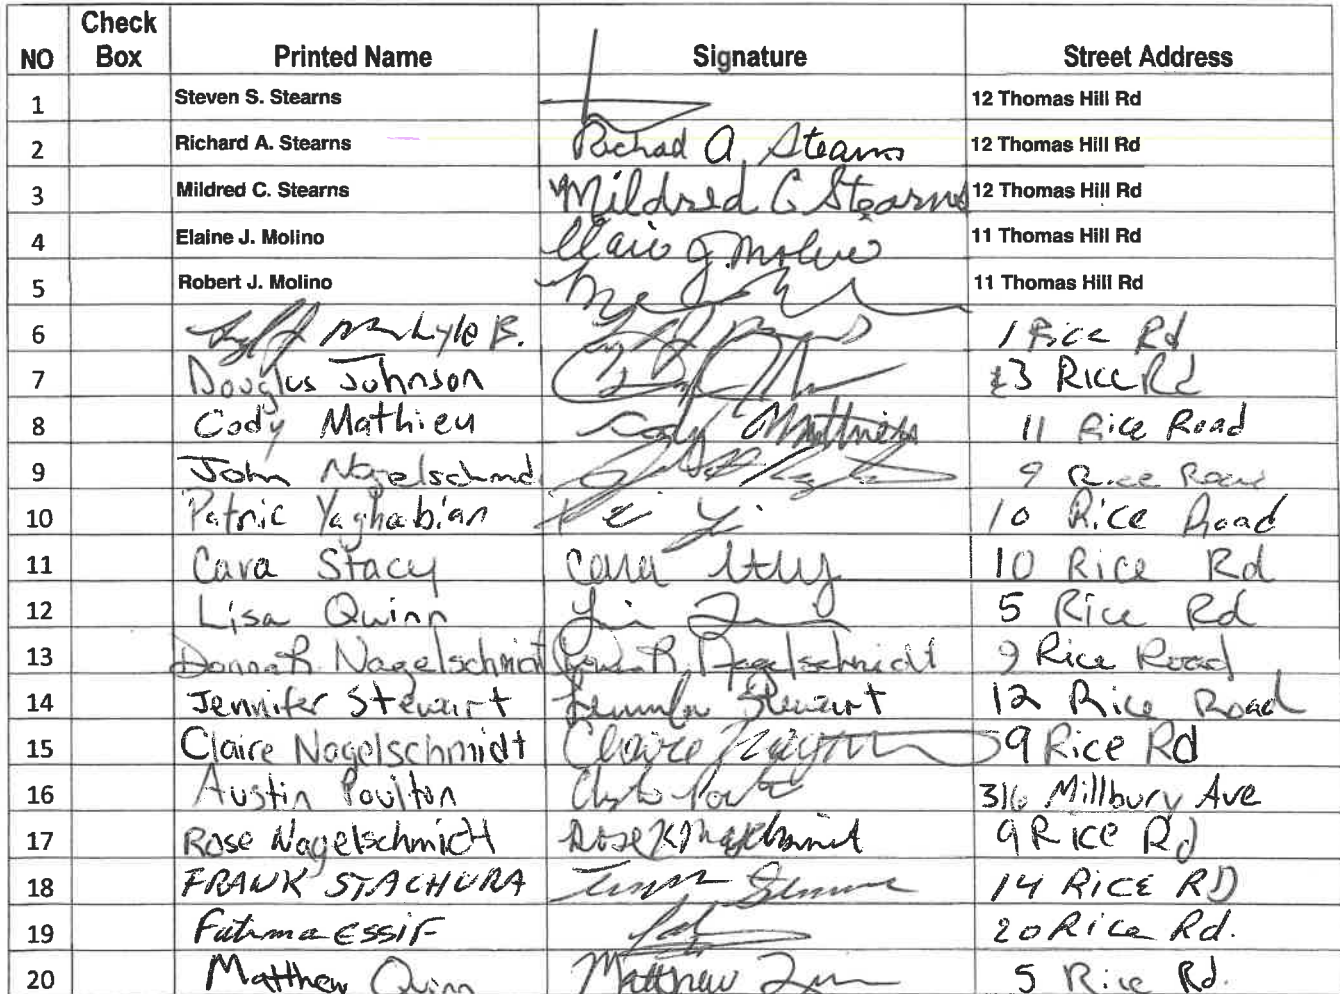 NO Check Box Printed Name Signature Street Address
1 Steven S. Stearns 12 Thomas Hill Rd
2 Richard A. Stearns Richard A. Stearns 12 Thomas Hill Rd
3 Mildred C. Stearns Mildred C Stearns 12 Thomas Hill Rd
4 Elaine J. Molino Elaine J. Molino 11 Thomas Hill Rd
5 Robert J. Molino 11 Thomas Hill Rd
6 Lyle B. 1 Rice Rd
7 Douglas Johnson 3 Rice Rd
8 Cody Mathieu Cody Mathieu 11 Rice Road
9 John Nagelschmid 9 Rice Road
10 Patric Yaghabian 10 Rice Road
11 Cara Stacy Cara Stacy 10 Rice Rd
12 Lisa Quinn 5 Rice Rd
13 Donna R. Nagelschmidt Donna R. Nagelschmidt 9 Rice Road
14 Jennifer Stewart Jennifer Stewart 12 Rice Road
15 Claire Nagelschmidt Claire 9 Rice Rd
16 Austin Poulton 316 Millbury Ave
17 Rose Nagelschmidt Rose K Nagelschmidt 9 Rice Rd
18 FRANK STACHURA 14 RICE RD
19 Fatima ESSIF 20 Rice Rd.
20 Matthew Quinn Matthew 5 Rice Rd.